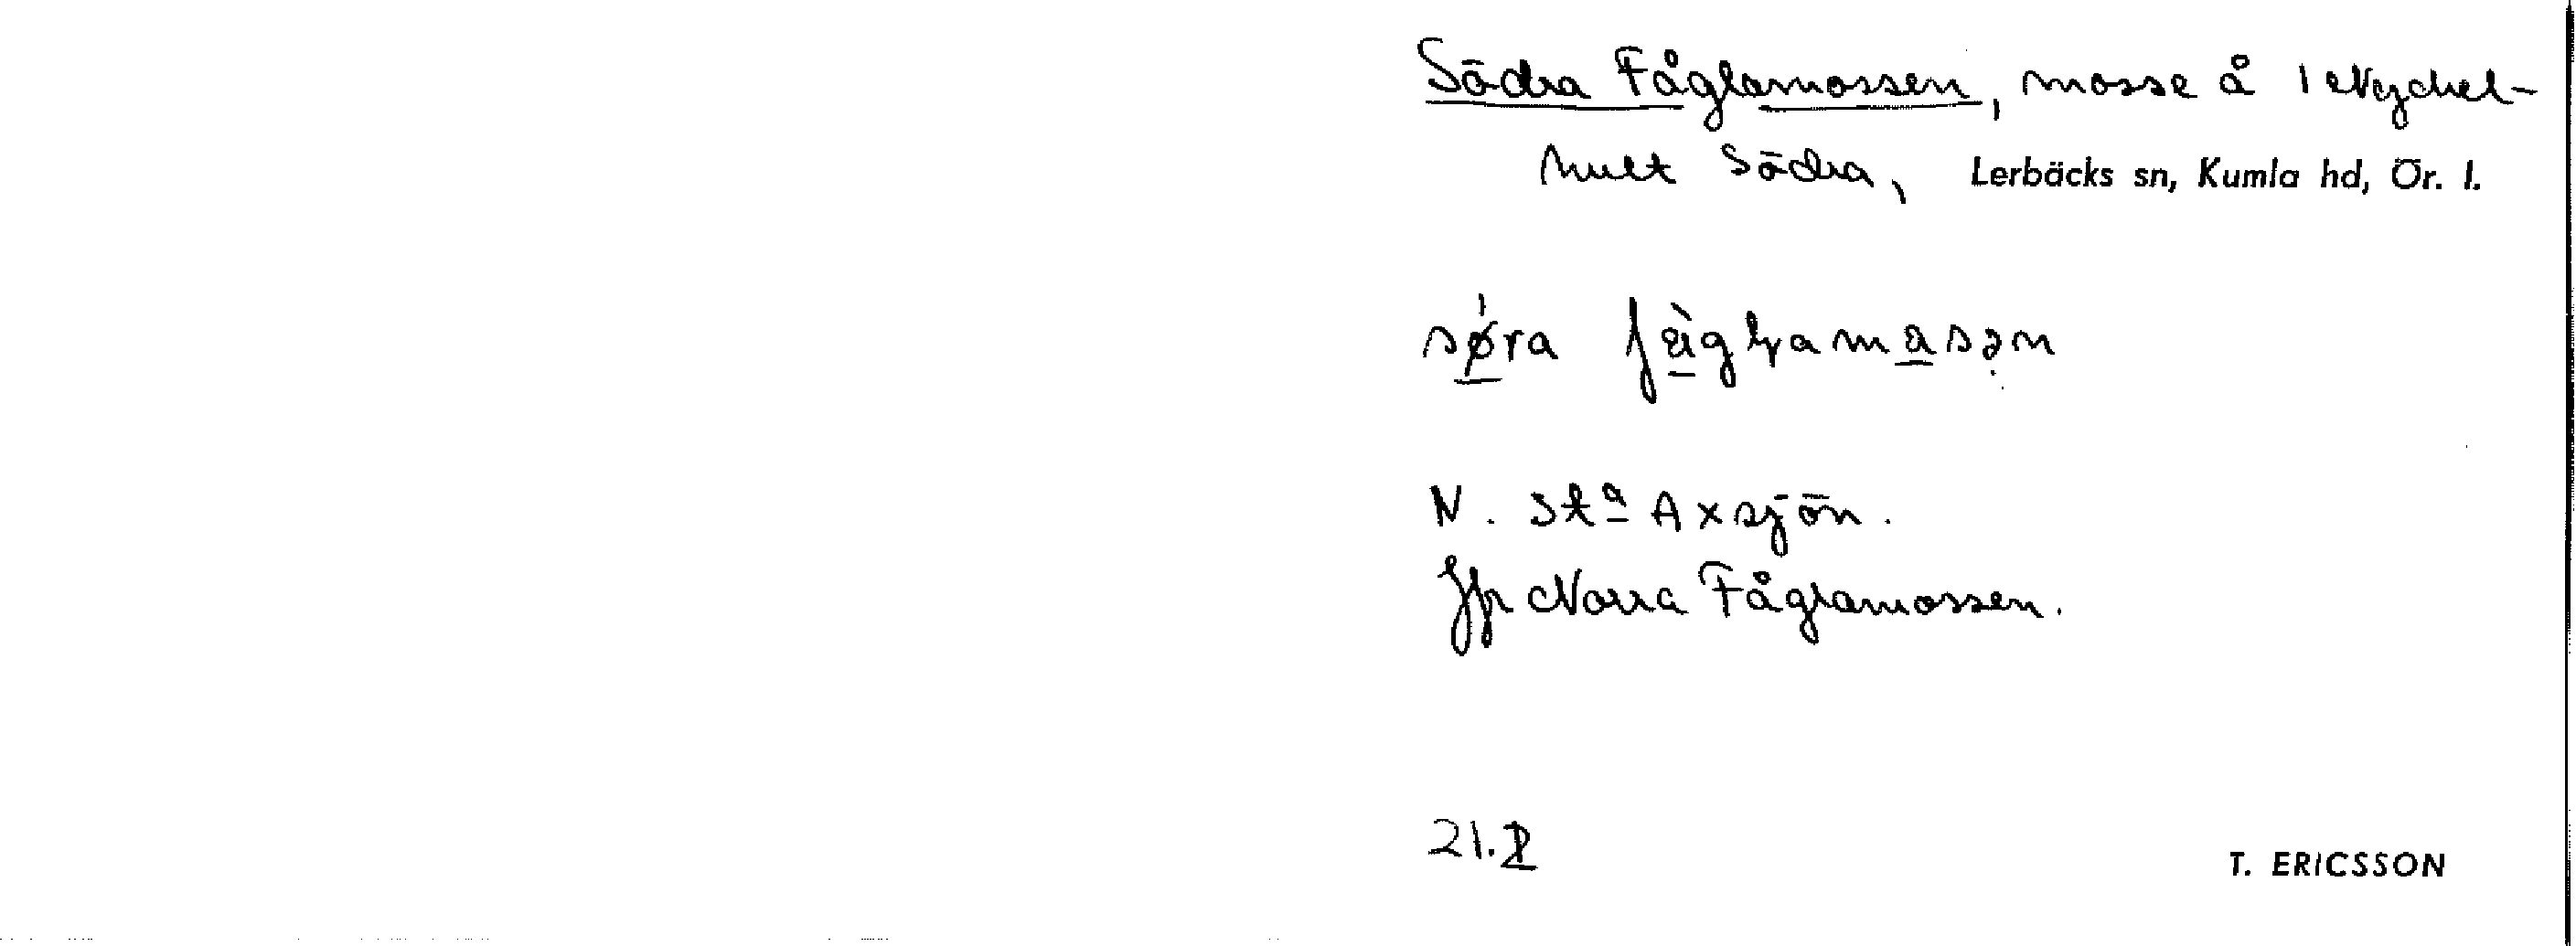 Södra Fåglamossen, mosse å 1 Nyckel-
hult Södra, Lerbäcks sn, Kumla hd, Ör. l.
N. St<u>a</u> Axsjön.
Jfr Norra Fåglamossen.
21.
T. ERICSSON